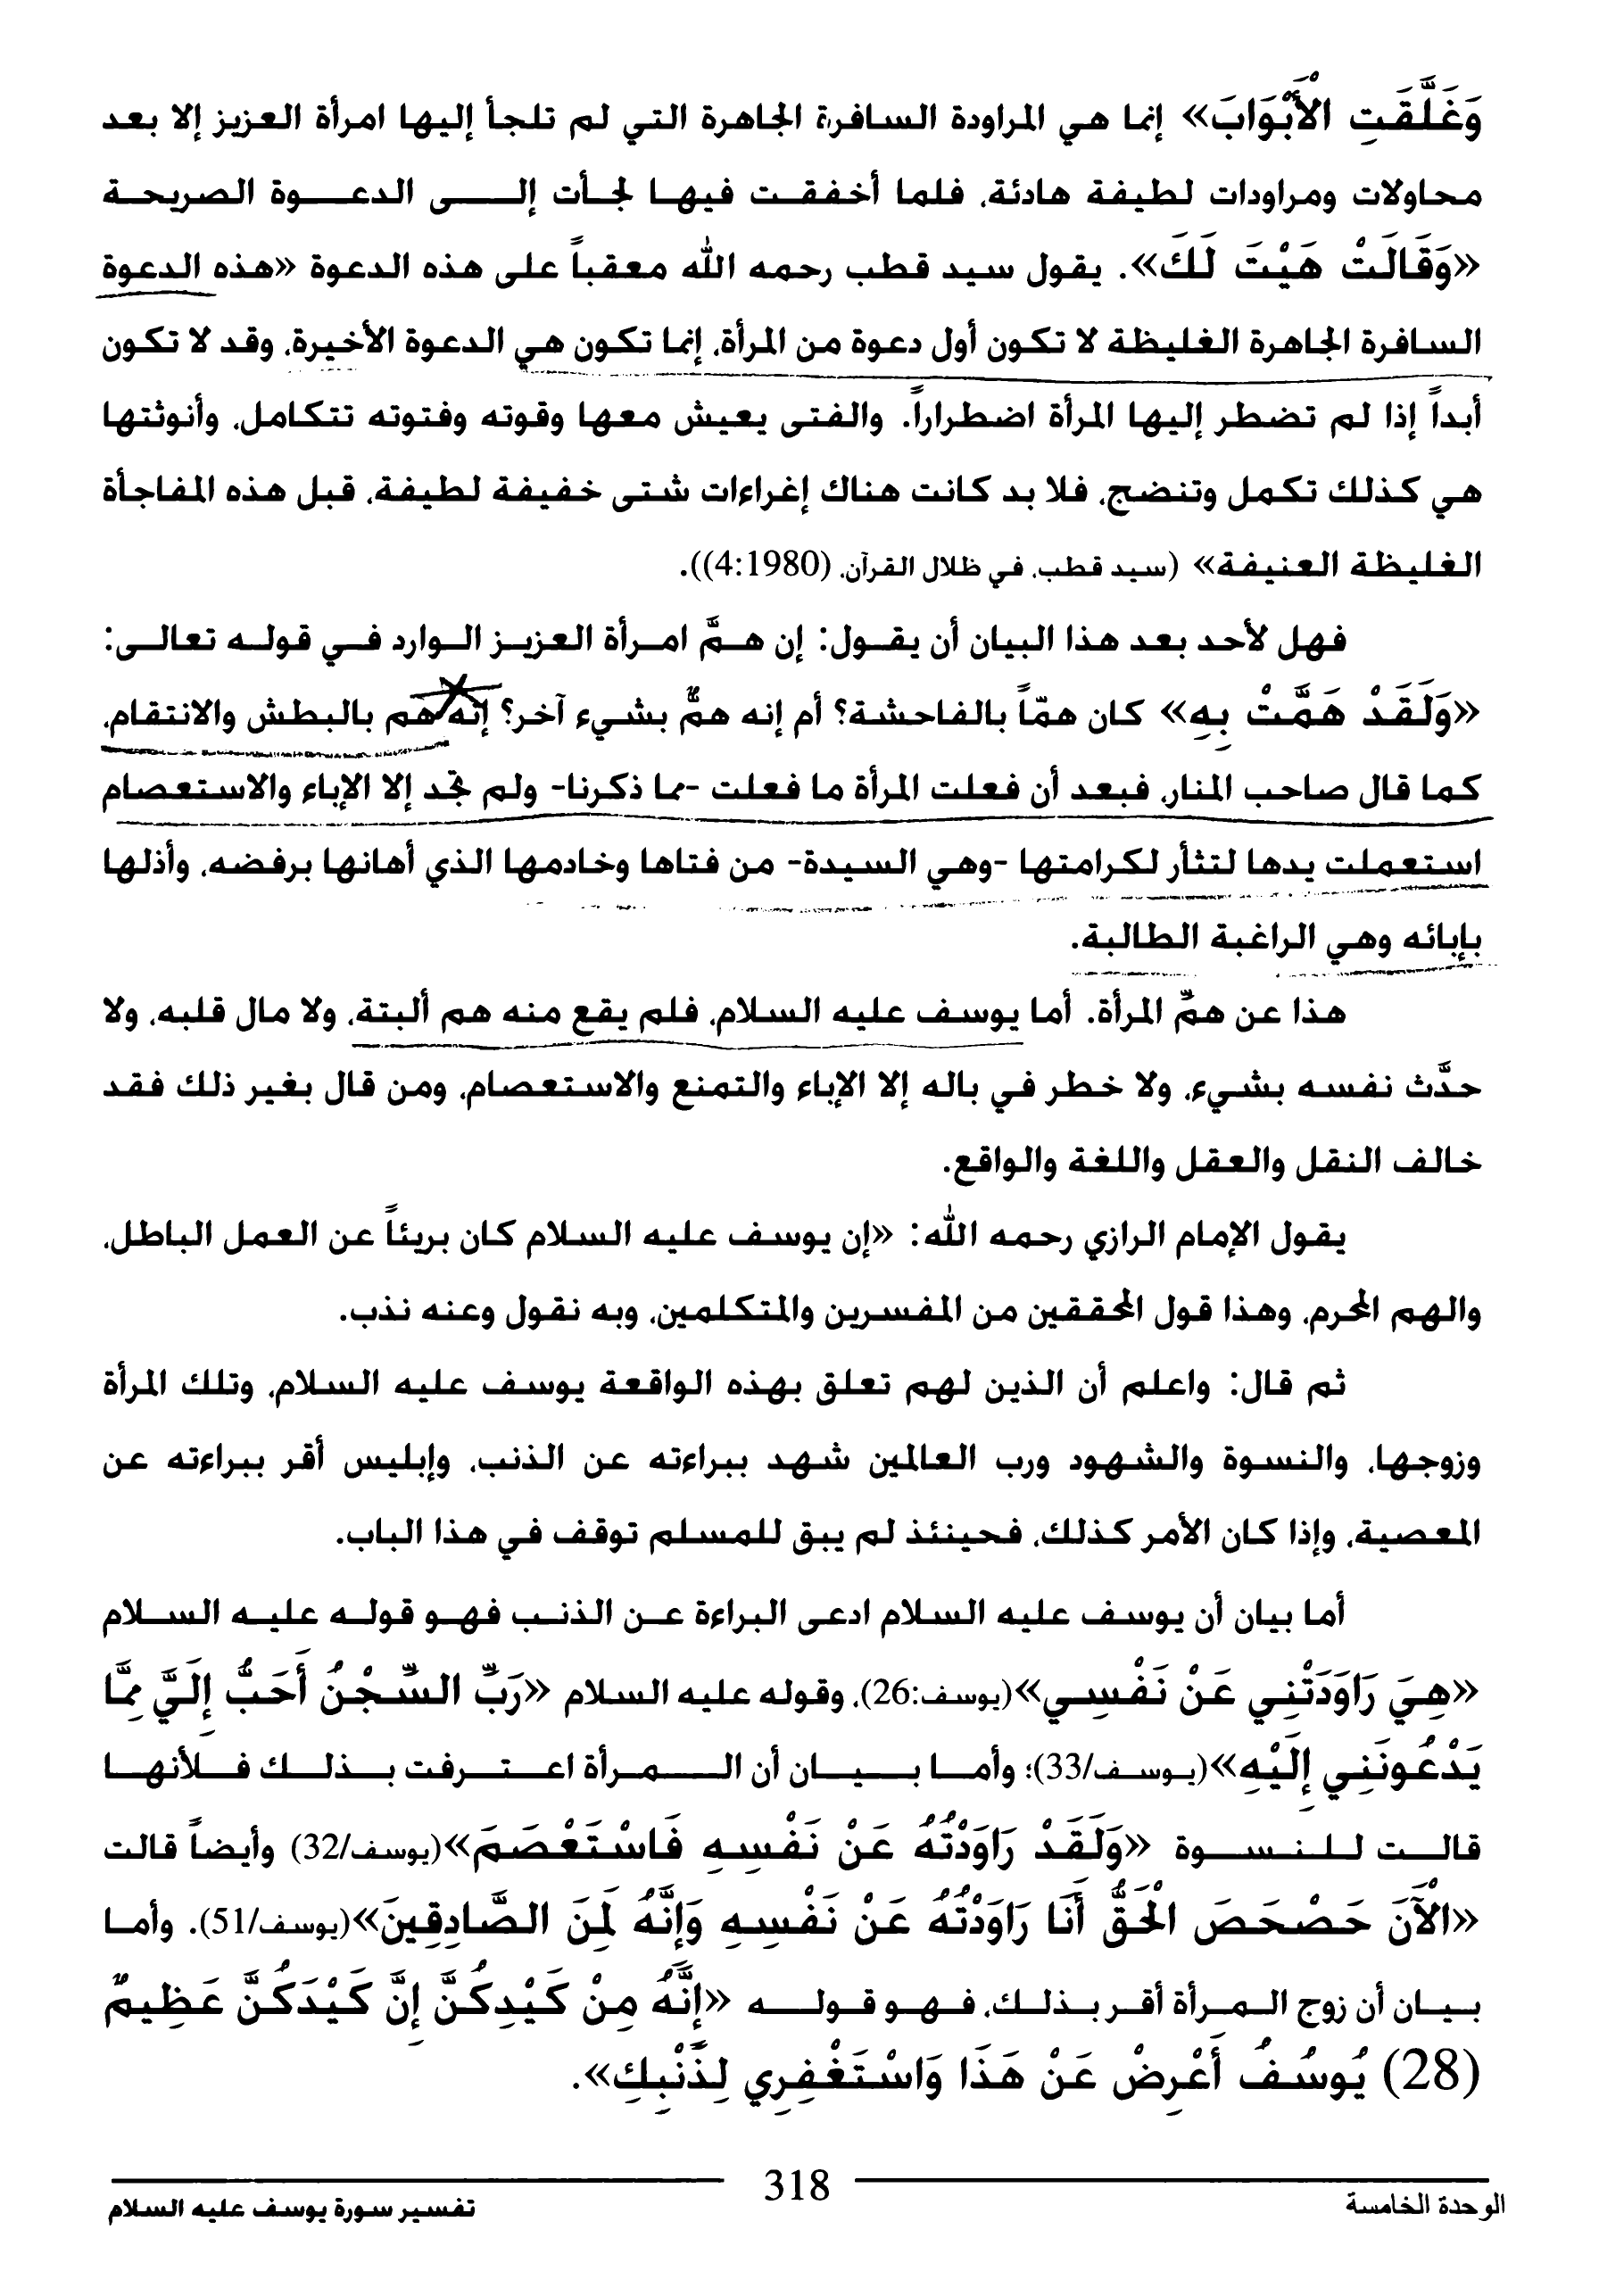 وَغَلَّقَتِ الْأَبْوَابَ» إنما هي المراودة السافرة الجاهرة التي لم تلجأ إليها امرأة العزيز إلا بعد
محاولات ومراودات لطيفة هادئة، فلما أخفقت فيها لجأت إلى الدعوة الصريحة
«وَقَالَتْ هَيْتَ لَكَ». يقول سيد قطب رحمه الله معقباً على هذه الدعوة «هذه الدعوة
السافرة الجاهرة الغليظة لا تكون أول دعوة من المرأة، إنما تكون هي الدعوة الأخيرة، وقد لا تكون
أبداً إذا لم تضطر إليها المرأة اضطراراً. والفتى يعيش معها وقوته وفتوته تتكامل، وأنوثتها
هي كذلك تكمل وتنضج، فلا بد كانت هناك إغراءات شتى خفيفة لطيفة، قبل هذه المفاجأة
الغليظة العنيفة» (سيد قطب، في ظلال القرآن، (4:1980)).
فهل لأحد بعد هذا البيان أن يقول: إن همَّ امرأة العزيز الوارد في قوله تعالى:
«وَلَقَدْ هَمَّتْ بِهِ» كان همّاً بالفاحشة؟ أم إنه همٌّ بشيء آخر؟ إنه هم بالبطش والانتقام،
كما قال صاحب المنار، فبعد أن فعلت المرأة ما فعلت -مما ذكرنا- ولم تجد إلا الإباء والاستعصام
استعملت يدها لتثأر لكرامتها -وهي السيدة- من فتاها وخادمها الذي أهانها برفضه، وأذلها
بإبائه وهي الراغبة الطالبة.
هذا عن همِّ المرأة. أما يوسف عليه السلام، فلم يقع منه هم ألبتة، ولا مال قلبه، ولا
حدَّث نفسه بشيء، ولا خطر في باله إلا الإباء والتمنع والاستعصام، ومن قال بغير ذلك فقد
خالف النقل والعقل واللغة والواقع.
يقول الإمام الرازي رحمه الله: «إن يوسف عليه السلام كان بريئاً عن العمل الباطل،
والهم المحرم، وهذا قول المحققين من المفسرين والمتكلمين، وبه نقول وعنه نذب.
ثم قال: واعلم أن الذين لهم تعلق بهذه الواقعة يوسف عليه السلام، وتلك المرأة
وزوجها، والنسوة والشهود ورب العالمين شهد ببراءته عن الذنب، وإبليس أقر ببراءته عن
المعصية، وإذا كان الأمر كذلك، فحينئذ لم يبق للمسلم توقف في هذا الباب.
أما بيان أن يوسف عليه السلام ادعى البراءة عن الذنب فهو قوله عليه السلام
«هِيَ رَاوَدَتْنِي عَنْ نَفْسِي»(يوسف:26)، وقوله عليه السلام «رَبِّ السِّجْنُ أَحَبُّ إِلَيَّ مِمَّا
يَدْعُونَنِي إِلَيْهِ»(يوسف/33)؛ وأما بيان أن المرأة اعترفت بذلك فلأنها
قالت للنسوة «وَلَقَدْ رَاوَدْتُهُ عَنْ نَفْسِهِ فَاسْتَعْصَمَ»(يوسف/32) وأيضاً قالت
«الْآنَ حَصْحَصَ الْحَقُّ أَنَا رَاوَدْتُهُ عَنْ نَفْسِهِ وَإِنَّهُ لَمِنَ الصَّادِقِينَ»(يوسف/51). وأما
بيان أن زوج المرأة أقر بذلك، فهو قوله «إِنَّهُ مِنْ كَيْدِكُنَّ إِنَّ كَيْدَكُنَّ عَظِيمٌ
(28) يُوسُفُ أَعْرِضْ عَنْ هَذَا وَاسْتَغْفِرِي لِذَنْبِكِ».
الوحدة الخامسة 318 تفسير سورة يوسف عليه السلام